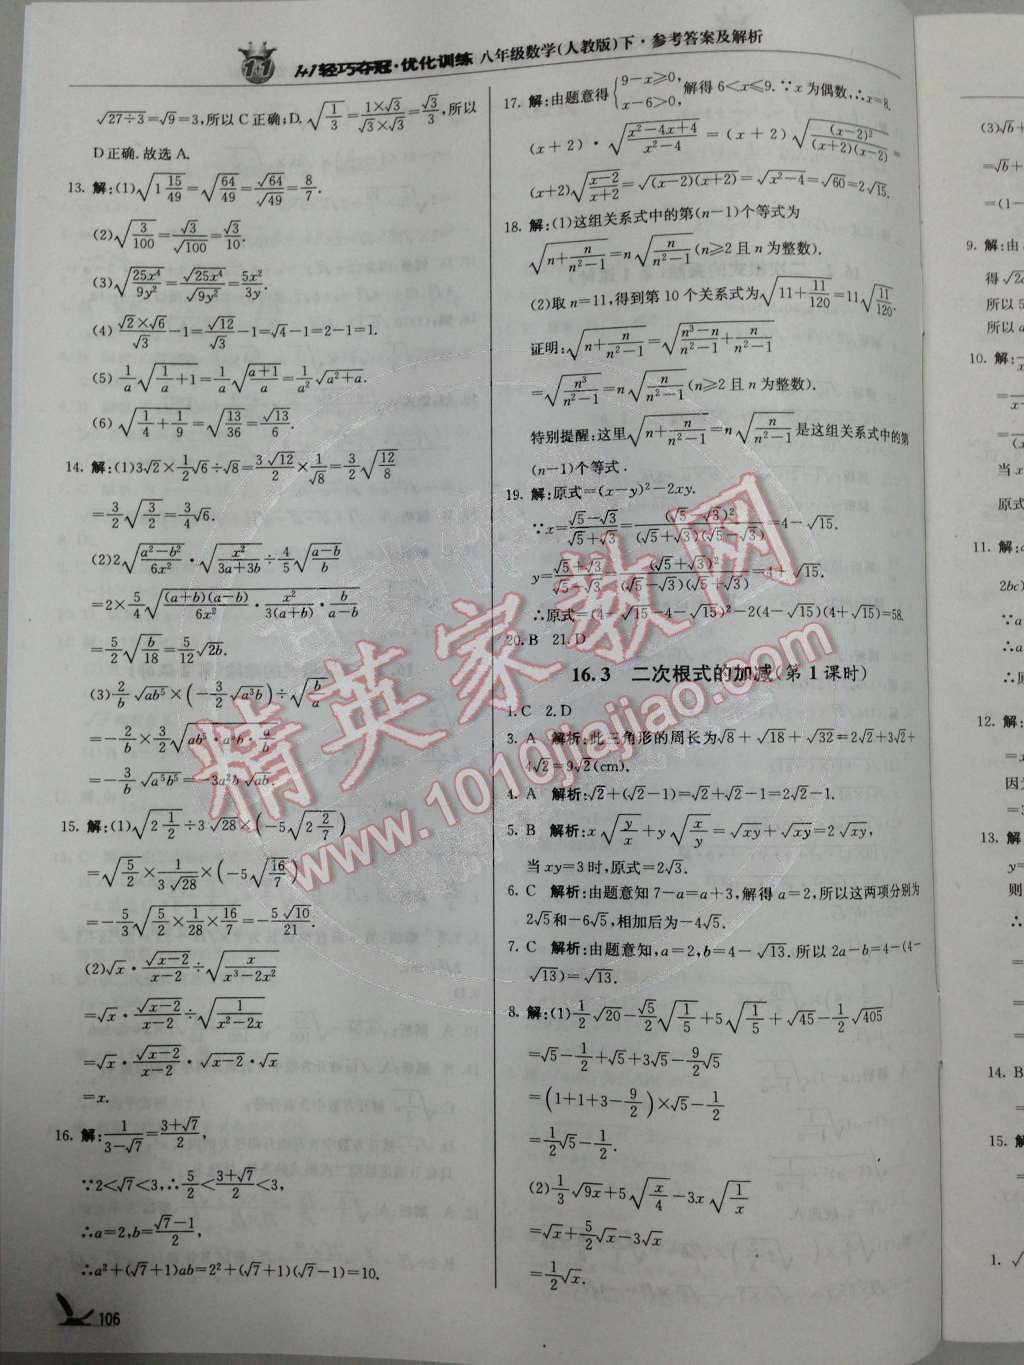 1+1轻巧夺冠·优化训练 八年级数学(人教版)下·参考答案及解析
√(27÷3)=√9=3,所以C正确;D.√(1/3)=(1×√3)/(√3×√3)=√3/3,所以
D正确.故选A.
13. 解:(1)√(1 15/49)=√(64/49)=√64/√49=8/7.
(2)√(3/100)=√3/√100=√3/10.
(3)√(25x⁴/9y²)=√(25x⁴)/√(9y²)=5x²/3y.
(4)(√2×√6)/√3-1=√12/√3-1=√4-1=2-1=1.
(5)1/a √(1/a+1)=1/a √((a+1)/a)=1/a² √(a²+a).
(6)√(1/4+1/9)=√(13/36)=√13/6.
14. 解:(1)3√2×1/2√6÷√8=3√12/2×√(1/8)=3/2√(12/8)
=3/2√(3/2)=3/4√6.
(2)2√((a²-b²)/6x²)·√(x²/(3a+3b))÷4/5√((a-b)/b)
=2×5/4√((a+b)(a-b)/6x²·x²/3(a+b)·b/(a-b))
=5/2√(b/18)=5/12√(2b).
(3)2/b√(ab⁵)×(-3/2√(a³b))÷√(b/a)
=-2/b×3/2√(ab⁵·a³b·a/b)
=-3/b√(a⁵b⁵)=-3a²b√(ab).
15. 解:(1)√(2 1/2)÷3√28×(-5√(2 2/7))
=√(5/2)×1/(3√28)×(-5√(16/7))
=-5/3√(5/2×1/28×16/7)=-5√10/21.
(2)√x·√(x-2)/(x-2)÷√(x/(x³-2x²))
=√x·√(x-2)/(x-2)÷√(1/(x²-2x))
=√x·√(x-2)/(x-2)·√(x-2)·√x
=x.
16. 解:1/(3-√7)=(3+√7)/2,
∵2<√7<3,∴5/2<(3+√7)/2<3,
∴a=2,b=(√7-1)/2,
∴a²+(√7+1)ab=2²+(√7+1)(√7-1)=10.
106
17. 解:由题意得{9-x≥0, x-6>0, 解得6<x≤9.∵x为偶数,∴x=8.
(x+2)·√((x²-4x+4)/(x²-4))=(x+2)√((x-2)²/((x+2)(x-2)))=
(x+2)√((x-2)/(x+2))=√((x-2)(x+2))=√(x²-4)=√60=2√15.
18. 解:(1)这组关系式中的第(n-1)个等式为
√(n+n/(n²-1))=n√(n/(n²-1))(n≥2且n为整数).
(2)取n=11,得到第10个关系式为√(11+11/120)=11√(11/120).
证明:√(n+n/(n²-1))=√((n³-n)/(n²-1)+n/(n²-1))
=√(n³/(n²-1))=n√(n/(n²-1))(n≥2且n为整数).
特别提醒:这里√(n+n/(n²-1))=n√(n/(n²-1))是这组关系式中的第
(n-1)个等式.
19. 解:原式=(x-y)²-2xy.
∵x=(√5-√3)/(√5+√3)=(√5-√3)²/((√5+√3)(√5-√3))=4-√15.
y=(√5+√3)/(√5-√3)=(√5+√3)²/((√5-√3)(√5+√3))=4+√15.
∴原式=(4-√15-4-√15)²-2(4-√15)(4+√15)=58.
20. B 21. D
16.3 二次根式的加减(第1课时)
1. C 2. D
3. A 解析:此三角形的周长为√8+√18+√32=2√2+3√2+
4√2=9√2(cm).
4. A 解析:√2+(√2-1)=√2+√2-1=2√2-1.
5. B 解析:x√(y/x)+y√(x/y)=√(xy)+√(xy)=2√(xy),
当xy=3时,原式=2√3.
6. C 解析:由题意知7-a=a+3,解得a=2,所以这两项分别为
2√5和-6√5,相加后为-4√5.
7. C 解析:由题意知,a=2,b=4-√13.所以2a-b=4-(4-
√13)=√13.
8. 解:(1)1/2√20-√5/2√(1/5)+5√(1/5)+√45-1/2√405
=√5-1/2+√5+3√5-9/2√5
=(1+1+3-9/2)×√5-1/2
=1/2√5-1/2.
(2)1/3√(9x)+5√(x/4)-3x√(1/x)
=√x+5/2√x-3√x
=1/2√x.
精英家教网
www.1010jiajiao.com
9. 解:由
所以5
所以a
10. 解:
当x
原式
11. 解:a
2bc)
∵a
∴a
∴原
12. 解:
=x
因为
13. 解
y=
则
14. B
15.
1. √